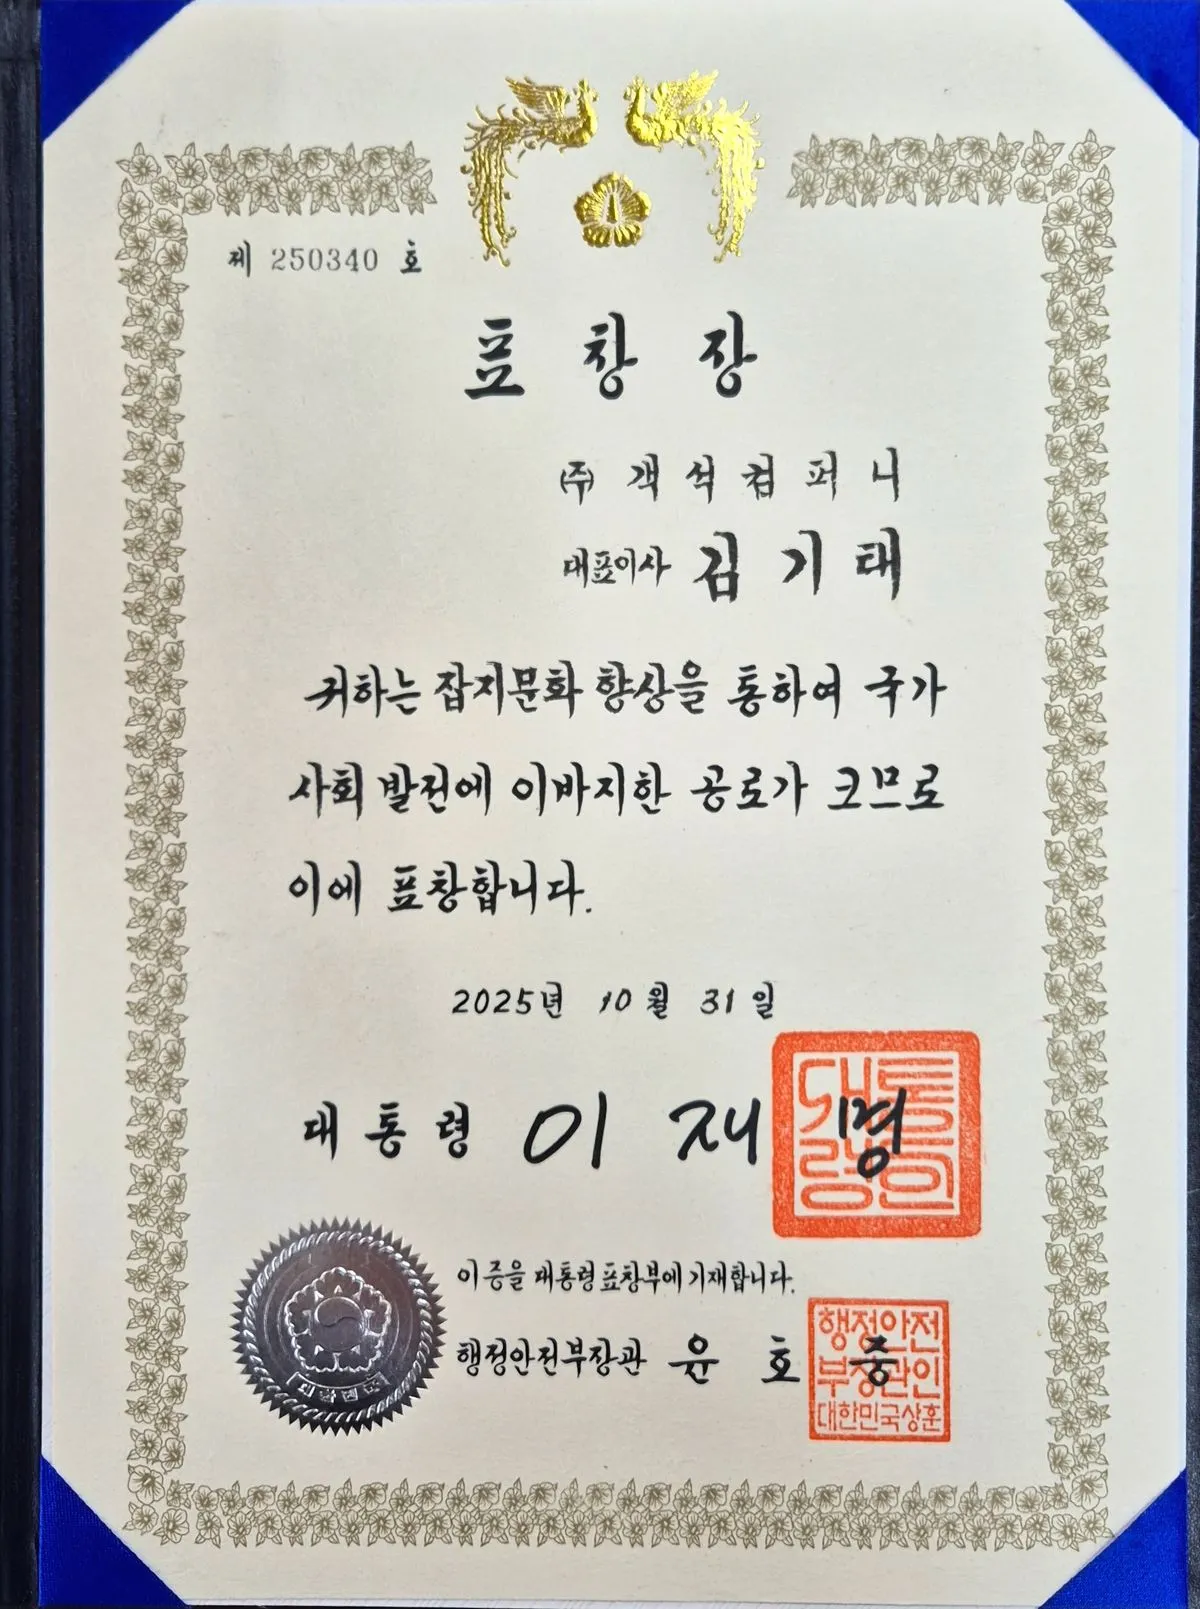 제 250340 호
표창장
(주) 객석컴퍼니
대표이사 김기태
귀하는 잡지문화 향상을 통하여 국가
사회 발전에 이바지한 공로가 크므로
이에 표창합니다.
2025년 10월 31일
대통령 이재명
대통령인
이 증을 대통령표창부에 기재합니다.
행정안전부장관 윤호중
행정안전
부장관인
대한민국상훈